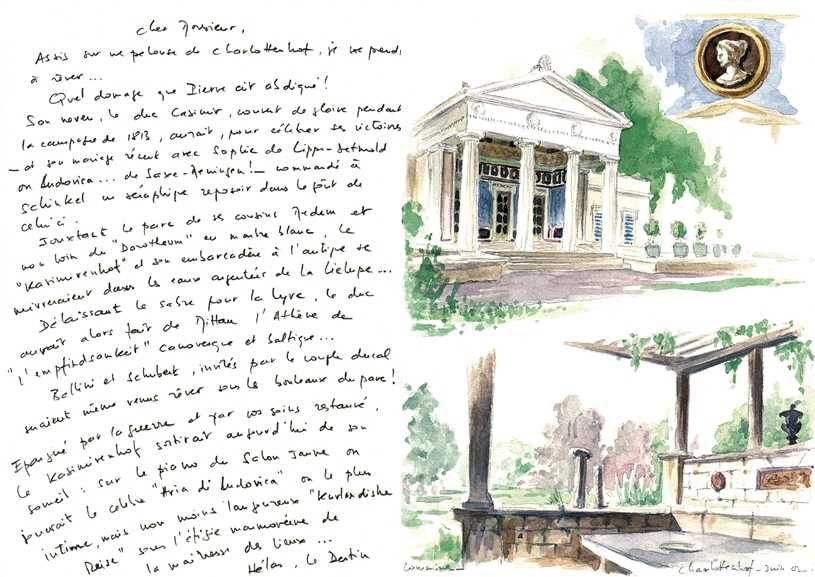 Cher Monsieur,
Assis sur une pelouse de Charlottenhof, je me prends
à rêver...
Quel dommage que Pierre ait abdiqué !
Son neveu, le duc Casimir, couvert de gloire pendant
la campagne de 1813, aurait, pour célébrer ses victoires
— et son mariage récent avec Sophie de Lippe-Detmold
ou Ludovica... de Saxe-Meiningen ! — commandé à
Schinkel un séraphique reposoir dans le goût de
celui-ci.
Jouxtant le parc de ses cousins Medem et
non loin du "Dorotheum" en marbre blanc, le
"Kasimirenhof" et son embarcadère à l'antique se
mireraient dans les eaux argentées de la Lielupe...
Délaissant le sabre pour la lyre, le duc
aurait alors fait de Mittau l'Athène de
"l'empfindsamkeit" canovesque et baltique...
Bellini et Schubert, invités par le couple ducal
seraient même venus rêver sous les bouleaux du parc !
Epargné par la guerre et par vos soins restauré,
le Kasimirenhof sortirait aujourd'hui de son
someil : sur le piano du Salon Jaune on
jouerait le célèbre "Aria di Ludovica" ou le plus
intime, mais non moins langoureux "Kurlandishe
Reise" sous l'effigie marmoréenne de
la maîtresse des lieux...
Hélas, le Destin
Charlottenhof - juin 02.